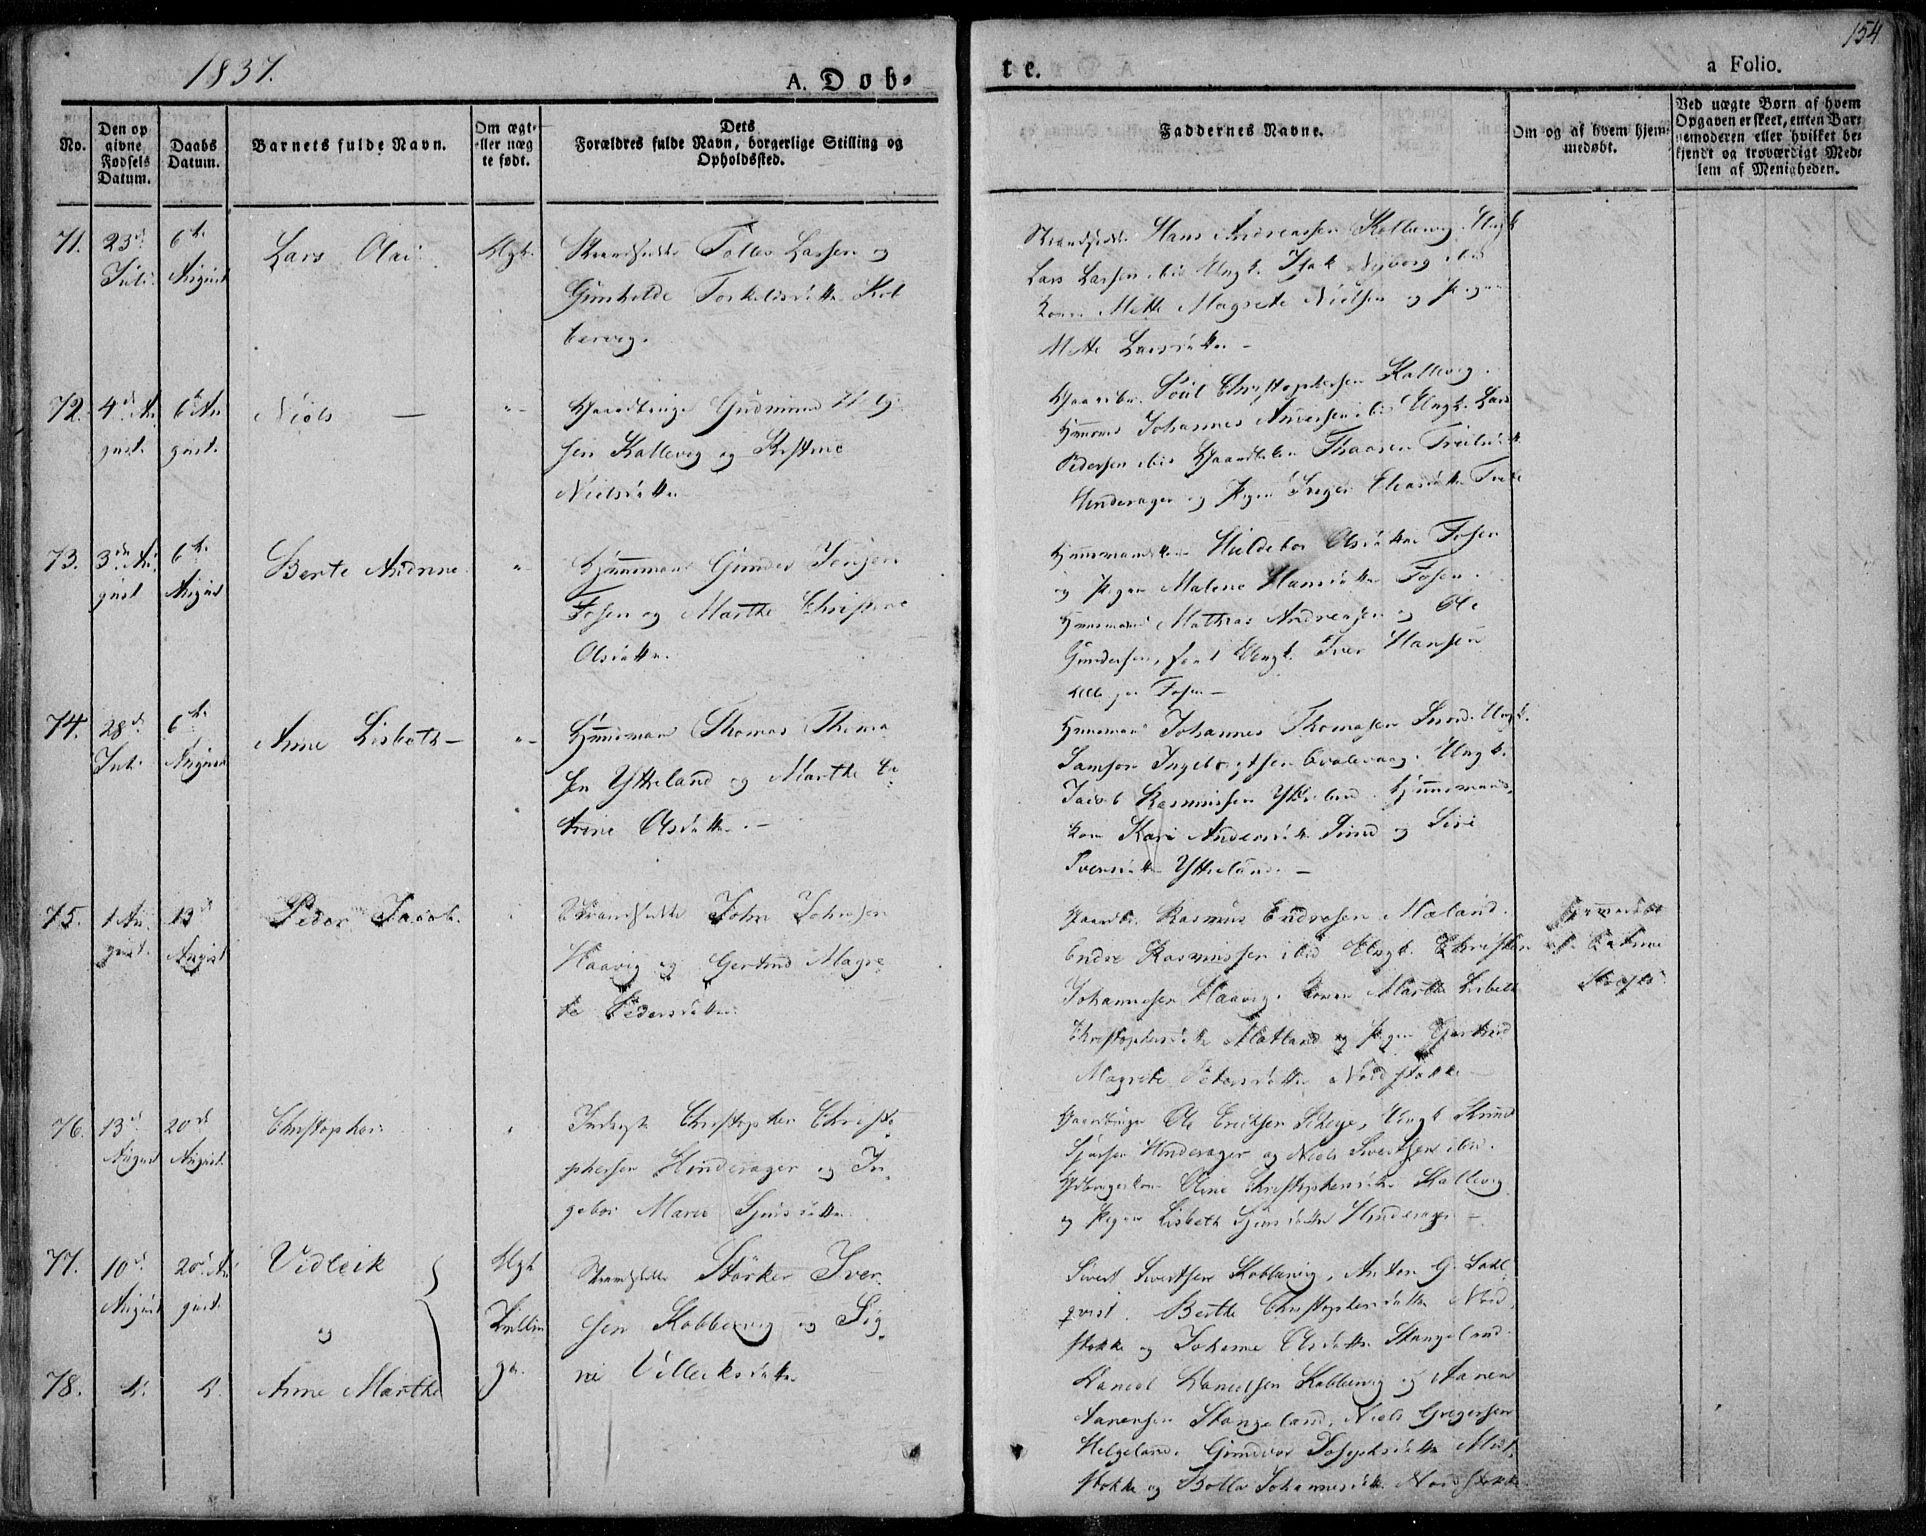 154
1837.
A. Døbte.
a Folio.
No.
Den opgivne Fødsels Datum.
Daabs Datum.
Barnets fulde Navn.
Om ægte eller uægte født.
Dets Forældres fulde Navn, borgerlige Stilling og Opholdssted.
Faddernes Navne.
Om og af hvem hjemmedøbt.
Ved uægte Børn af hvem Opgaven er skeet, enten Barnemoderen eller hvilket bekjendt og troværdigt Medlem af Menigheden.
71.
23d
Juli
6te
August
Lars Olai
Ægt.
Strandsidder Tollev Larsen og
Gunhilde Torkelsdatter Kob
bervig.
Strandsidder Hans Andreassen Kobbervig. Ungk
Lars Larsen ibid Ungk. Isak Nyborg ibid
Kone Mette Magrete Nielsen og Pigen
Mette Larsdatter –
72.
4de Au
gust.
6te Au
gust.
Niels –
"
Gaardbruger Gudmund
sen Kallevig og Kistine
Nielsdatter
Gaardbr. Poul Christophersen Kallevig.
Huusm. Johannes Andersen ibid Ungk. Lars
Pedersen ibid
Hinderager og Pigen Inger
73.
3die Au
gust
6te
August
Berte Andrine
"
Huusmand Gunder
Fosen og Marthe Christine
Olsdatter.
Huusmandskone Huldebor Olsdatter Fosen
og Pigen Malene Hansdatter Fosen.
Huusmand Mathias Andreasen og Ole
Gundersen, samt Ungk. Iver Hansen
alle paa Fosen –
74.
28d
Juli
6te
August
Anne Lisbeth –
"
Huusmand Thomas Thoma
sen Ytreland og Marthe Ca
trine Olsdatter. –
Huusmand Johannes Thomasen Sund. Ungk.
Samson Ingebrigtsen Ungk.
Jacob Rasmussen Ytreland. Huusmands
kone Kari Andersdatter Sund og Siri
Svensdatter Ytreland –
75.
1 Au
gust.
13d
August
Peder Jacob.
Strandsidder John Johnsen
Haavig og Gertrud Magre
te Pedersdatter.
Gaardbr. Rasmus Endresen Mæland.
Endre Rasmussen ibid Ungk. Christen
Johannesen Haavig. Konen Marthe Lisbeth
Christophersdatter Matland og Pigen Gertrud
Magrete Pedersdatter Nordstokke –
Hjemmedøbt
af Catrine
76.
13d
August
20de
August.
Christopher
Inderst Christopher Christo
phersen Hinderager og In
gebor Marie Sjursdatter
Gaardbruger Ole Eriksen Scheie, Ungk Knud
Sjursen Hinderager og Niels Sivertsen ibid.
Gdbrugerkone Oline Christophersdatter Kallevig
og Pigen Lisbeth Sjursdatter Hinderager –
77.
10d
August
20de Au
gust.
Vidleik
og
Ægt
Tvillin
ger.
Strandsidder Størker Iver
sen Kobbervig og Sig
ne Villeiksdatter
Sivert Sivertsen Kobbervig, Anton G. Dahl
qvist. Berthe Christophersdatter Nord
stokke og Johanne Olsdatter Stangeland.
78.
d.
d.
Anne Marthe
Daniel Danielsen Kobbervig og Aanen
Aanensen Stangeland, Niels Gregersen
Helgeland. Gundvor Josephsdatter Mid
stokke og Bolla Johannesdatter Nordstokke